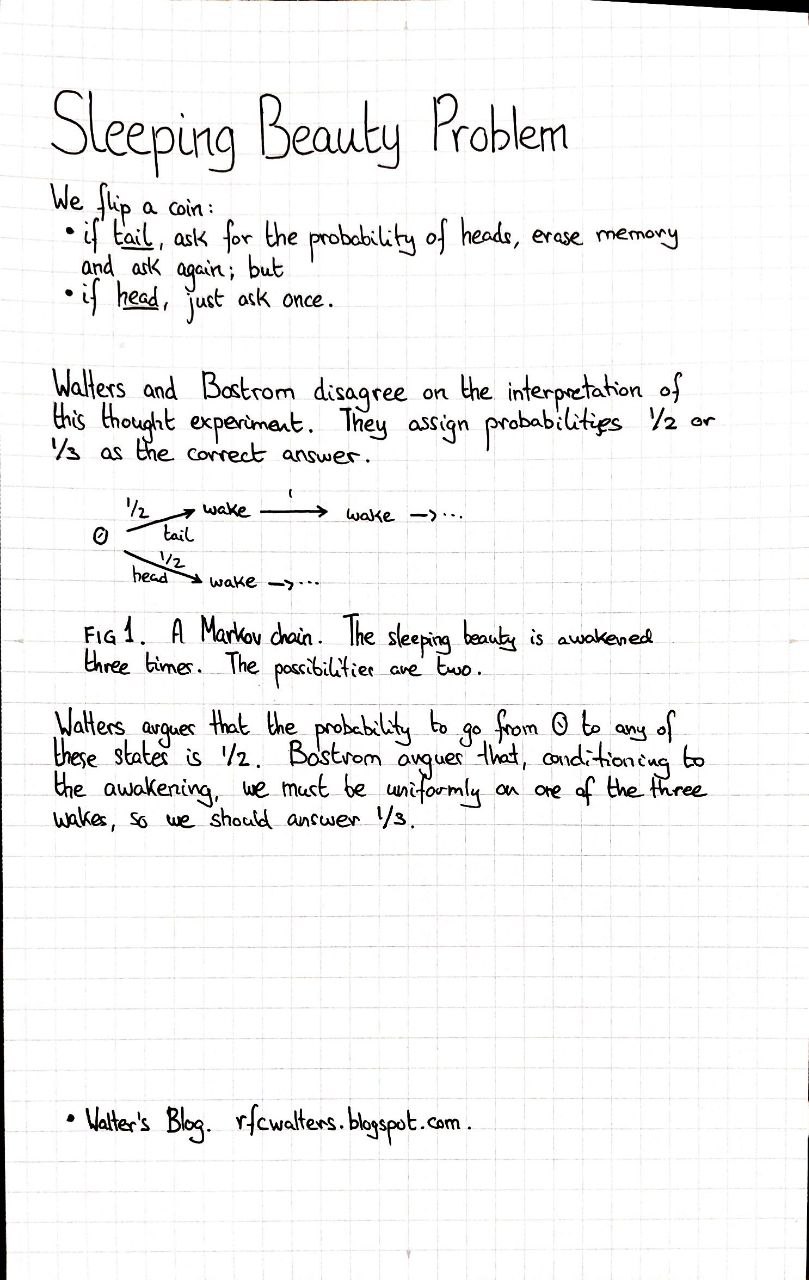 Sleeping Beauty Problem
We flip a coin:
• if tail, ask for the probability of heads, erase memory
and ask again; but
• if head, just ask once.
Walters and Bostrom disagree on the interpretation of
this thought experiment. They assign probabilities 1/2 or
1/3 as the correct answer.
1/2 wake 1 wake -> ...
0 tail
1/2
head wake -> ...
FIG 1. A Markov chain. The sleeping beauty is awakened
three times. The possibilities are two.
Walters argues that the probability to go from 0 to any of
these states is 1/2. Bostrom argues that, conditioning to
the awakening, we must be uniformly on one of the three
wakes, so we should answer 1/3.
• Walter's Blog. rfcwalters.blogspot.com.